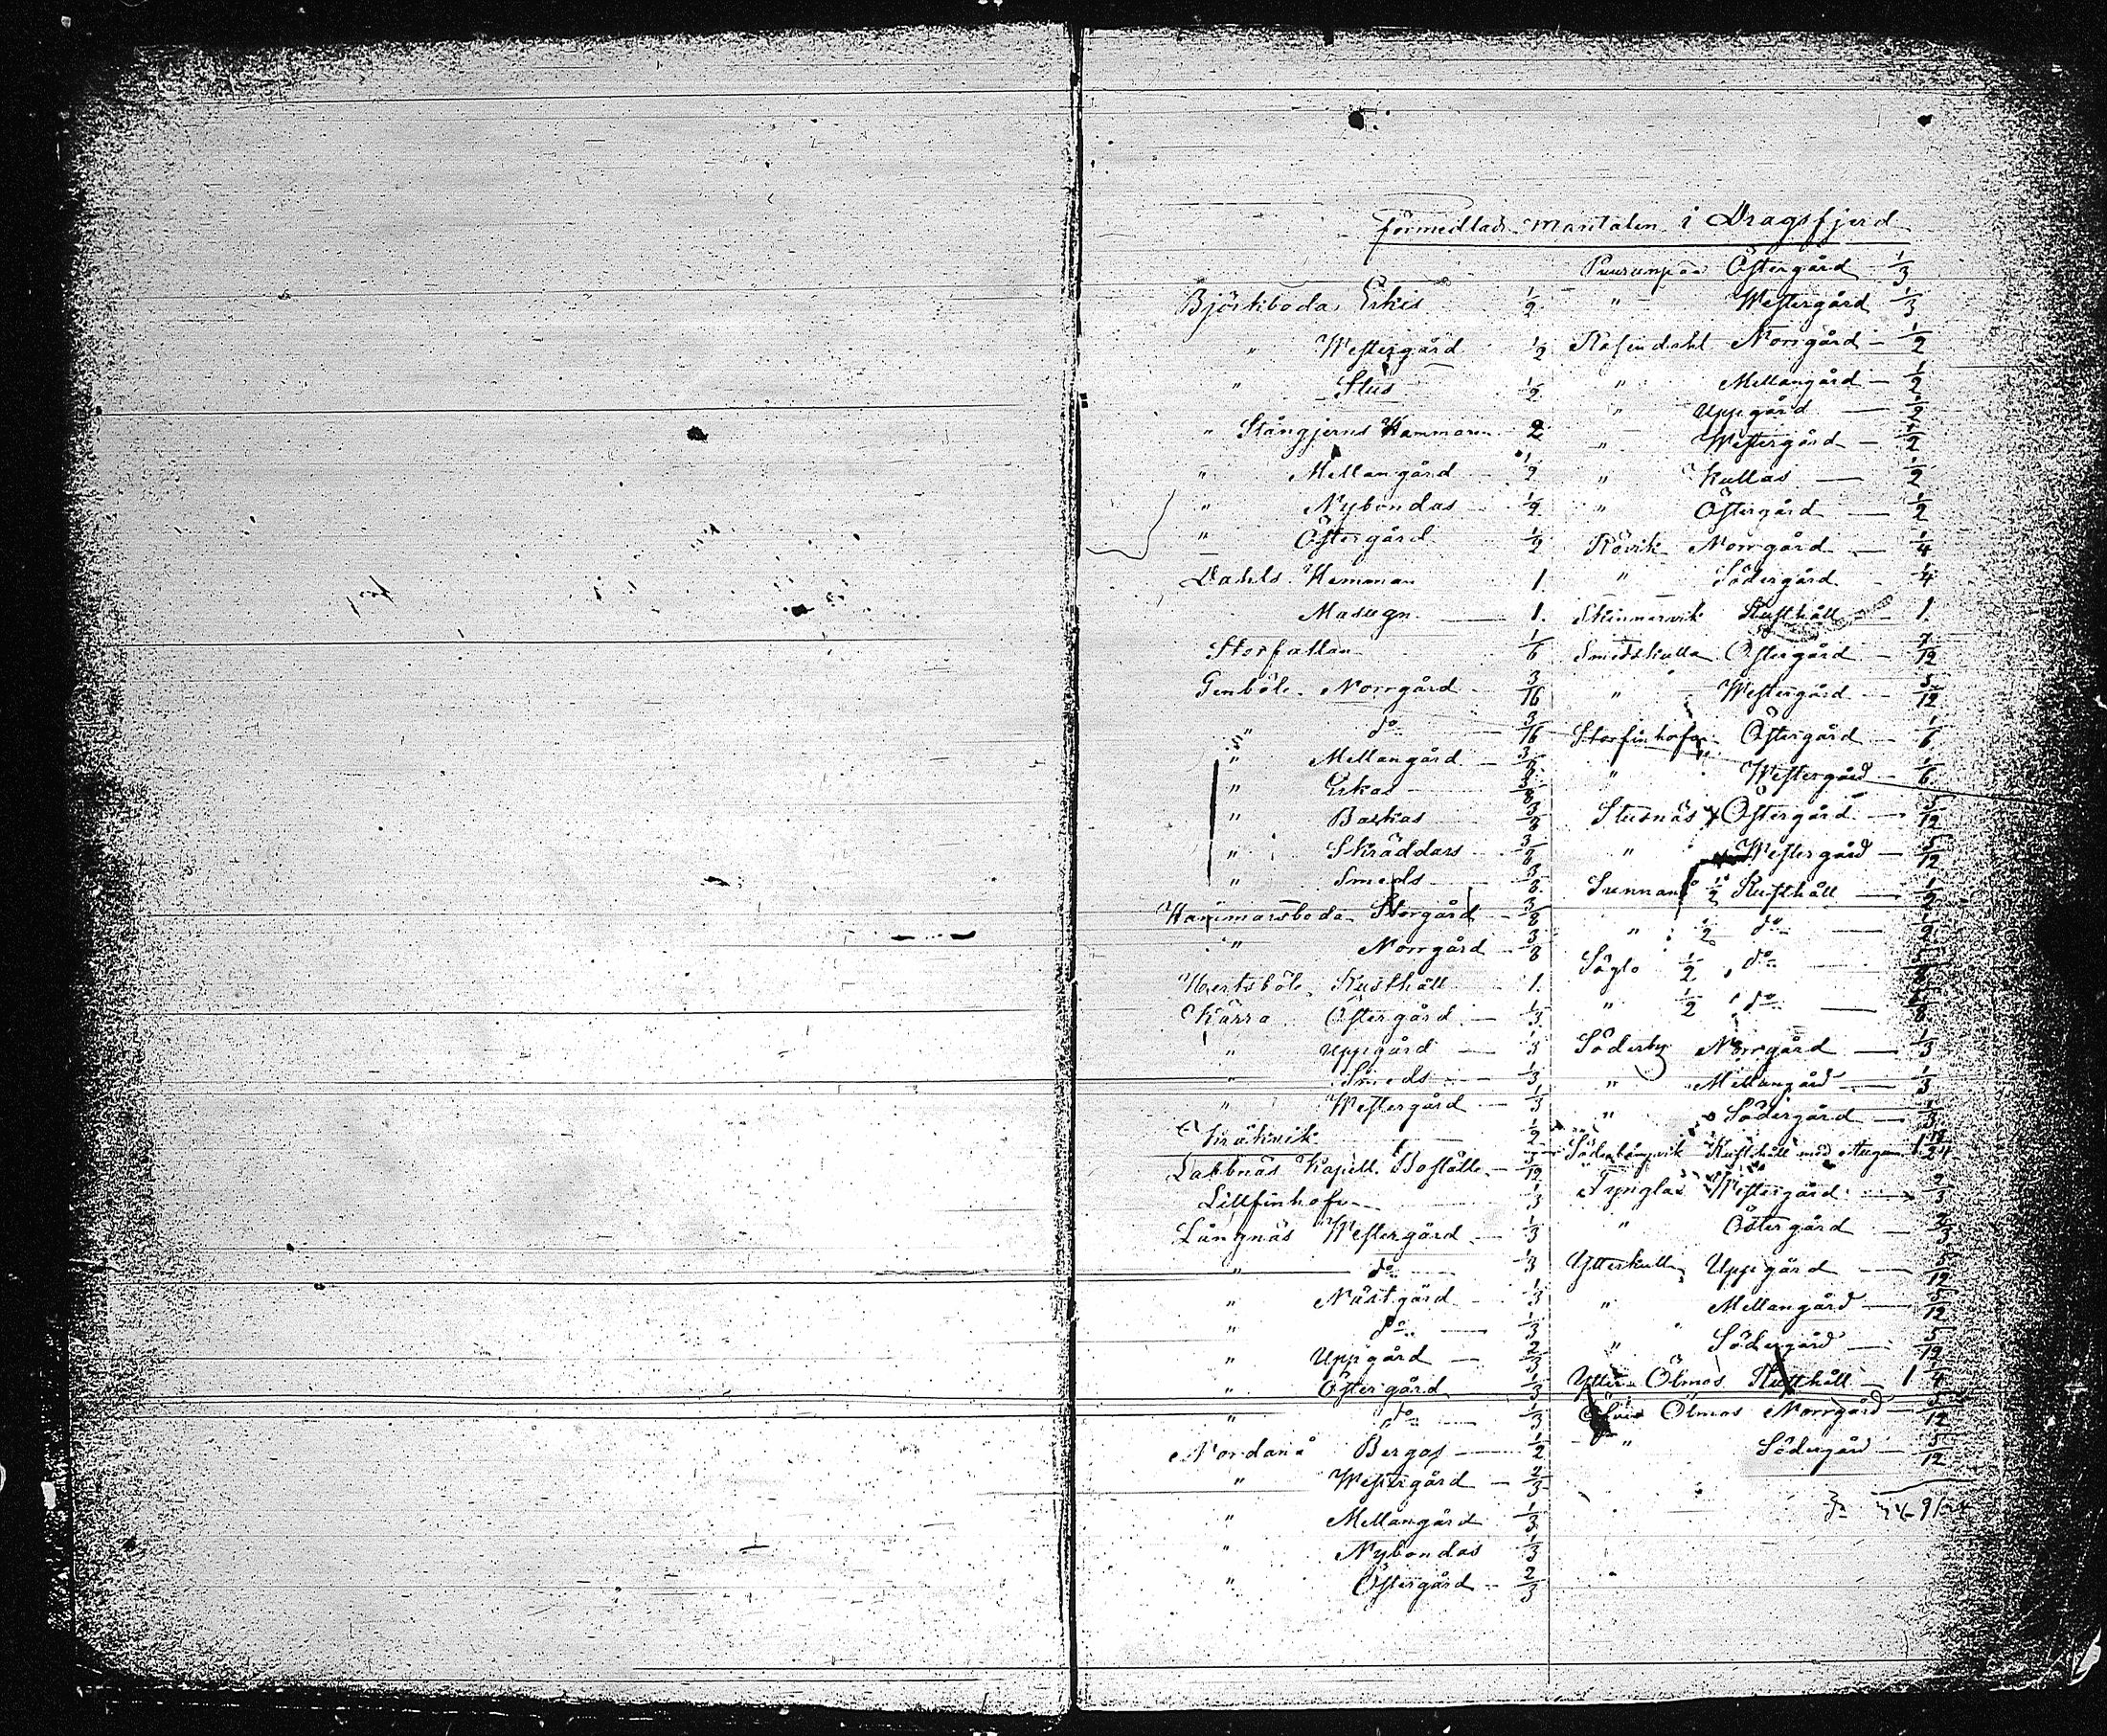 förmedlade mantalen i Dragsfjerd
Björkboda Erkis 1/2
" Westergård 1/2
" Stus 1/2
" Stångjerns Hammaren 2
" Mellangård 1/2
" Nybondas 1/2
" Östergård 1/2
Dahls Hemman 1.
Masugn 1.
Storfallan 1/6
Genböle Norrgård 3/16
" do 3/16
" Mellangård 3/8
" Erkas 3/8
" Baskas 3/8
" Skräddars 3/8
" Smeds 3/8
Hammarsboda Storgård 3/8
" Norrgård 3/8
Hertsböle Rusthåll 1.
Kärra Östergård 1/3
" Uppgård 1/3
" Smeds 1/3
" Westergård 1/3
Kråkvik 1/2
Labbnäs Kapell. Boställe 5/12
Lillfinhofva 1/3
Långnäs Westergård 1/3
" do 1/3
" Nästgård 1/3
" do 1/3
" Uppgård 2/3
" Östergård 1/3
" do 1/3
Nordanå Bergas 1/2
" Westergård 2/3
" Mellangård 1/3
" Nybondas 1/3
" Östergård 2/3
Puurunpää Östergård 1/3
" Westergård 1/3
Rosendahl Norrgård 1/2
" Mellangård 1/2
" Uppgård 1/2
" Westergård 1/2
" Kullas 1/2
" Östergård 1/2
Rövik Norrgård 1/4
" Södergård 1/4
Skinnarvik Rusthåll 1.
Smedskulla Östergård 7/12
" Westergård 5/12
Storfinhofva Östergård 1/6
" Westergård 1/6
Stusnäs Östergård 5/12
" Westergård 5/12
Sunnanå 1/2 Rusthåll 1/2
" 1/2 do 1/2
Söglo 1/2 do 5/8
" 1/2 do 5/8
Söderby Norrgård 1/3
" Mellangård 1/3
" Södergård 1/3
Söderlångvik Rusthåll med Augem
Tynglax Westergård 2/3
" Östergård 2/3
Ytterkulla Uppgård 5/12
" Mellangård 5/12
" Södergård 5/12
Ytter Ölmos Rusthåll 1 1/4
Öfver Ölmos Norrgård 5/12
" Södergård 5/12